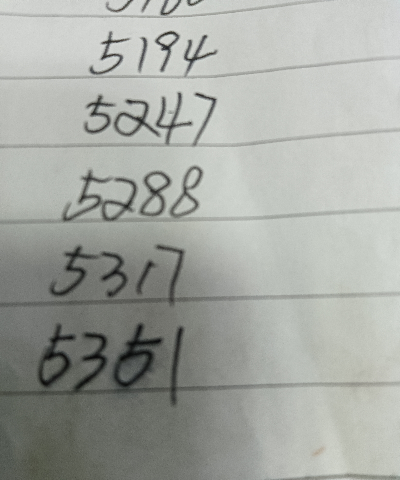 5194
5247
5288
5317
5351